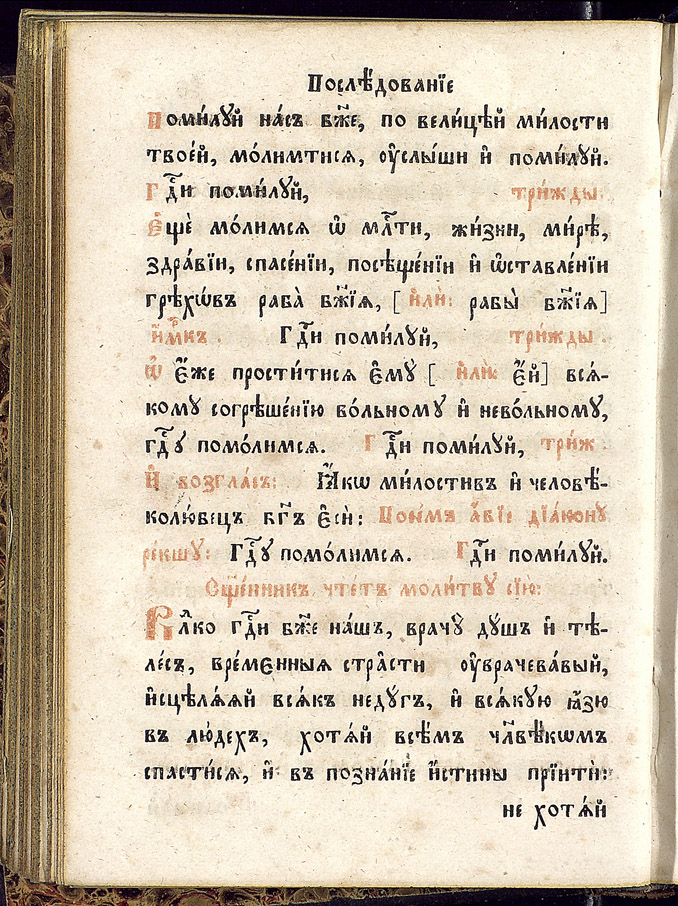 Послѣ́дованїе
Поми́лꙋй на́съ бж҃е, по вели́цѣй ми́лости
твое́й, мо́лимтисѧ, ᲂу҆слы́ши и҆ поми́лꙋй.
Гдⷭ҇и поми́лꙋй, три́жды.
Е҆щѐ мо́лимсѧ ѡ҆ млⷭ҇ти, жи́зни, ми́рѣ,
здра́вїи, спасе́нїи, посѣще́нїи и҆ ѡ҆ставле́нїи
грѣхѡ́въ раба̀ бж҃їѧ, [ и҆лѝ: рабы̀ бж҃їѧ]
и҆́мⷬ҇къ. Гдⷭ҇и поми́лꙋй, три́жды.
Ѡ҆ є҆́же прости́тисѧ є҆мꙋ̀ [ и҆лѝ: є҆́й] всѧ́-
комꙋ согрѣше́нїю во́льномꙋ и҆ нево́льномꙋ,
гдⷭ҇ꙋ помо́лимсѧ. Гдⷭ҇и поми́лꙋй, три́ж.
И҆ возгла́съ: Ꙗ҆́кѡ ми́лостивъ и҆ человѣ-
колю́бецъ бг҃ъ є҆сѝ: Пое́мъ а҆́бїе дїа́конꙋ
ре́кшꙋ: Гдⷭ҇ꙋ помо́лимсѧ. Гдⷭ҇и поми́лꙋй.
Сщ҃е́нникъ чте́тъ моли́твꙋ сїю̀:
Влⷣко гдⷭ҇и бж҃е на́шъ, врачꙋ̀ дꙋ́шъ и҆ тѣ-
ле́съ, вре́менныѧ стра̑сти ᲂу҆врачева́вый,
и҆сцѣлѧ́ѧй всѧ́къ недꙋ́гъ, и҆ всѧ́кꙋю ꙗ҆́зю
въ лю́дехъ, хотѧ́й всѣ́мъ чл҃вѣ́кѡмъ
спасти́сѧ, и҆ въ позна́нїе и҆́стины прїитѝ:
не хотѧ́й